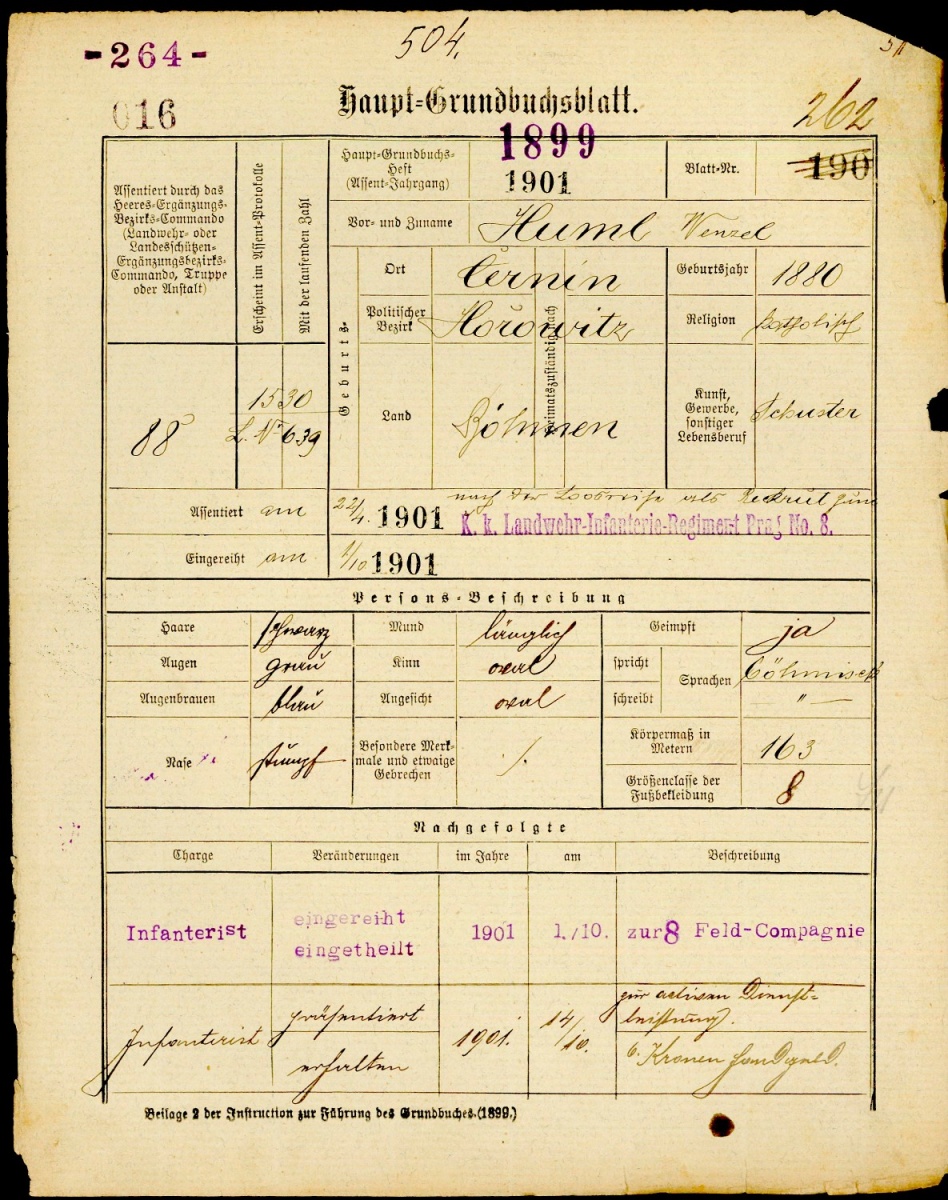 504.
-264-
016
Haupt=Grundbuchsblatt.
262
Assentiert durch das
Heeres=Ergänzungs=
Bezirks=Commando
(Landwehr= oder
Landesschützen=
Ergänzungsbezirks=
Commando, Truppe
oder Anstalt)
Erscheint im Assent=Protokolle
Mit der laufenden Zahl
Haupt=Grundbuchs=
Heft
(Assent=Jahrgang)
1899
1901
Blatt=Nr.
190
Vor= und Zuname
Huml Wenzel
Geburts=
Ort
Černin
Geburtsjahr
1880
Politischer
Bezirk
Hořowitz
Heimatszuständig nach
Religion
katholisch
Land
Böhmen
Kunst,
Gewerbe,
sonstiger
Lebensberuf
Schuster
88
1530
L. No 639
Assentiert am
22/4. 1901
nach der Losreihe als Rekrut zum
K. k. Landwehr-Infanterie-Regiment Prag No. 8.
Eingereiht am
1/10 1901
Persons=Beschreibung
Haare
schwarz
Mund
länglich
Geimpft
ja
Augen
grau
Kinn
oval
spricht
Sprachen
böhmisch
Augenbrauen
blau
Angesicht
oval
schreibt
" —
Nase
stumpf
Besondere Merk=
male und etwaige
Gebrechen
/.
Körpermaß in
Metern
163
Größenclasse der
Fußbekleidung
8
Nachgefolgte
Charge
Veränderungen
im Jahre
am
Beschreibung
Infanterist
eingereiht
eingetheilt
1901
1./10.
zur 8 Feld-Compagnie
Infanterist
präsentiert
1901.
14/10.
zur activen Dienst=
leistung.
erhalten
6 Kronen Handgeld.
Beilage 2 der Instruction zur Führung des Grundbuches.(1899.)